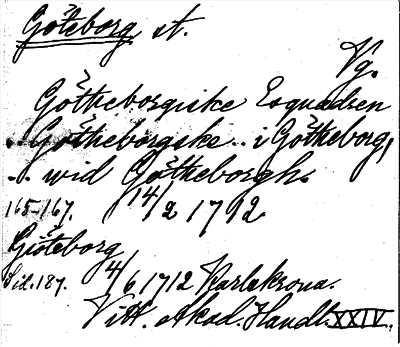 Göteborg st.
Vg.
Götheborgiske Esquadren
.. Götheborgske .. i Götheborg,
.. wid Götheborgh.
165-167. 14/2 1712.
Giöteborg
Sid. 187. 4/6 1712 Karlskrona.
Vitt. Akad. Handl. XXIV.